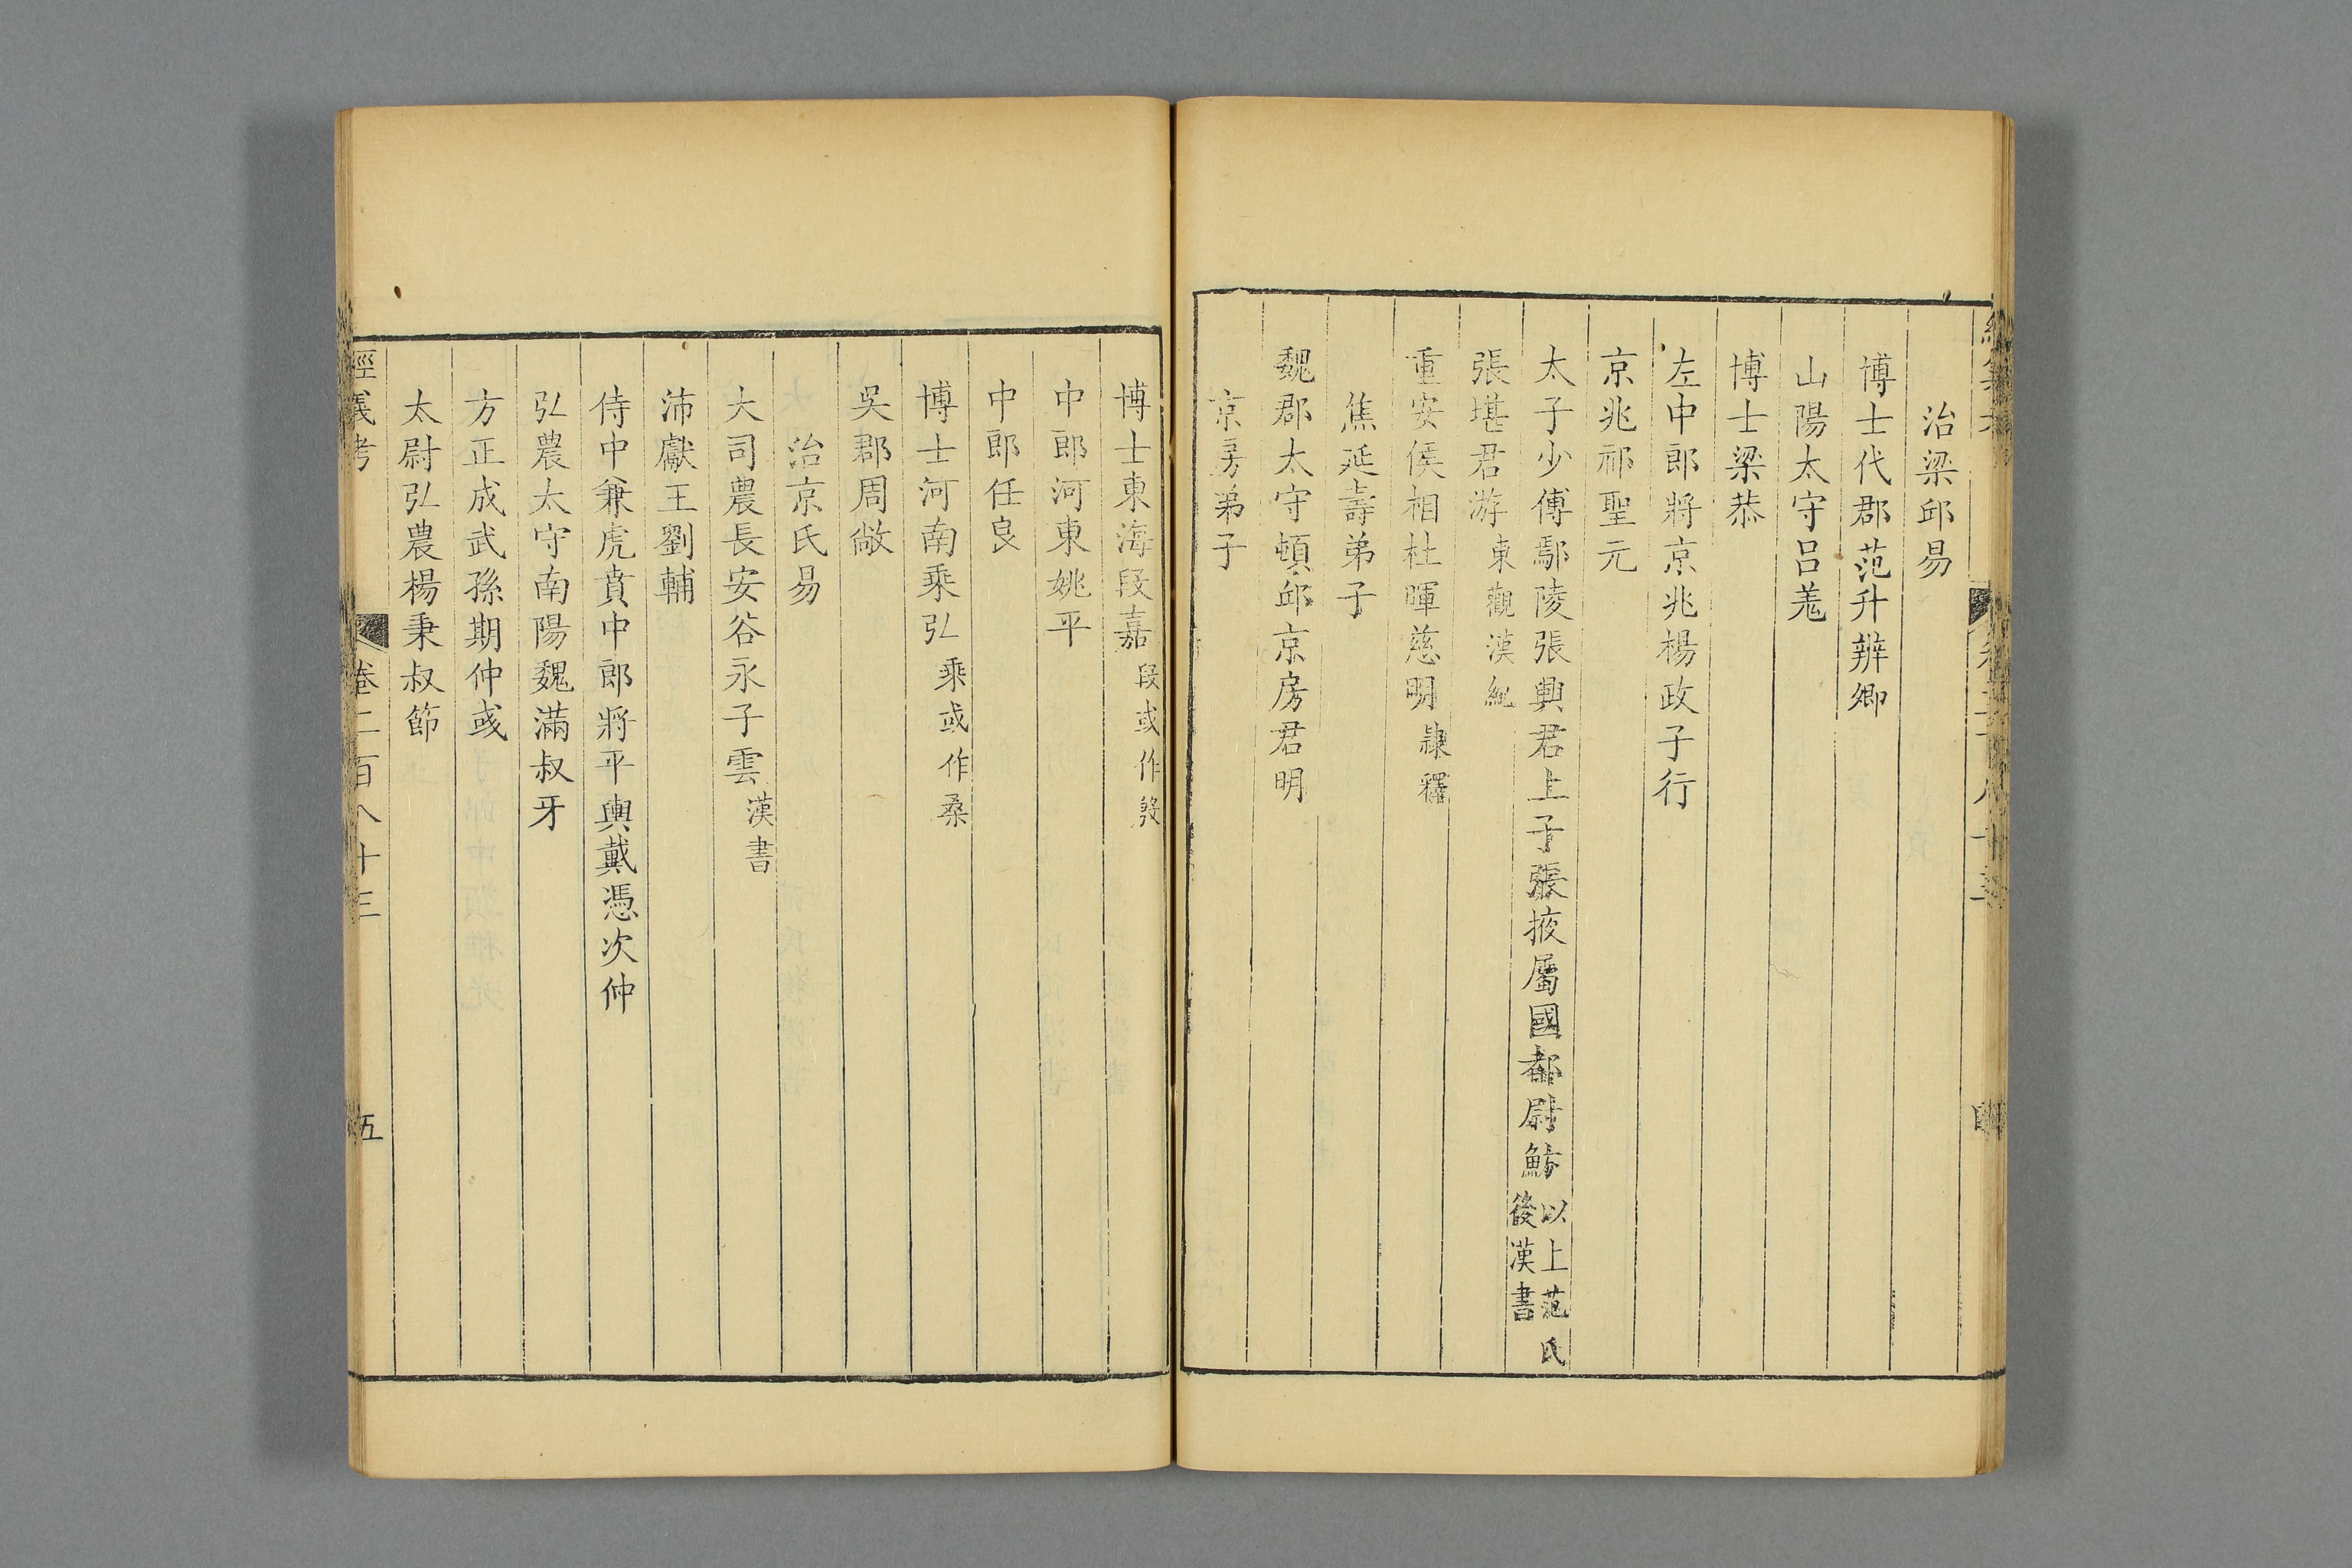 治梁邱易
博士代郡范升辨卿
山陽太守呂羌
博士梁恭
左中郎將京兆楊政子行
京兆祁聖元
太子少傅鄢陵張興君上子張掖屬國都尉魴以上范氏後漢書
張堪君游東觀漢紀
重安侯相杜暉慈明隷釋
焦延壽弟子
魏郡太守頓邱京房君明
京房弟子
博士東海段嘉段或作殷
中郎河東姚平
中郎任良
博士河南乘弘乘或作桑
吳郡周敞
治京氏易
大司農長安谷永子雲漢書
沛獻王劉輔
侍中兼虎賁中郎將平輿戴憑次仲
弘農太守南陽魏滿叔牙
方正成武孫期仲彧
太尉弘農楊秉叔節
經義考 卷二百八十三 五